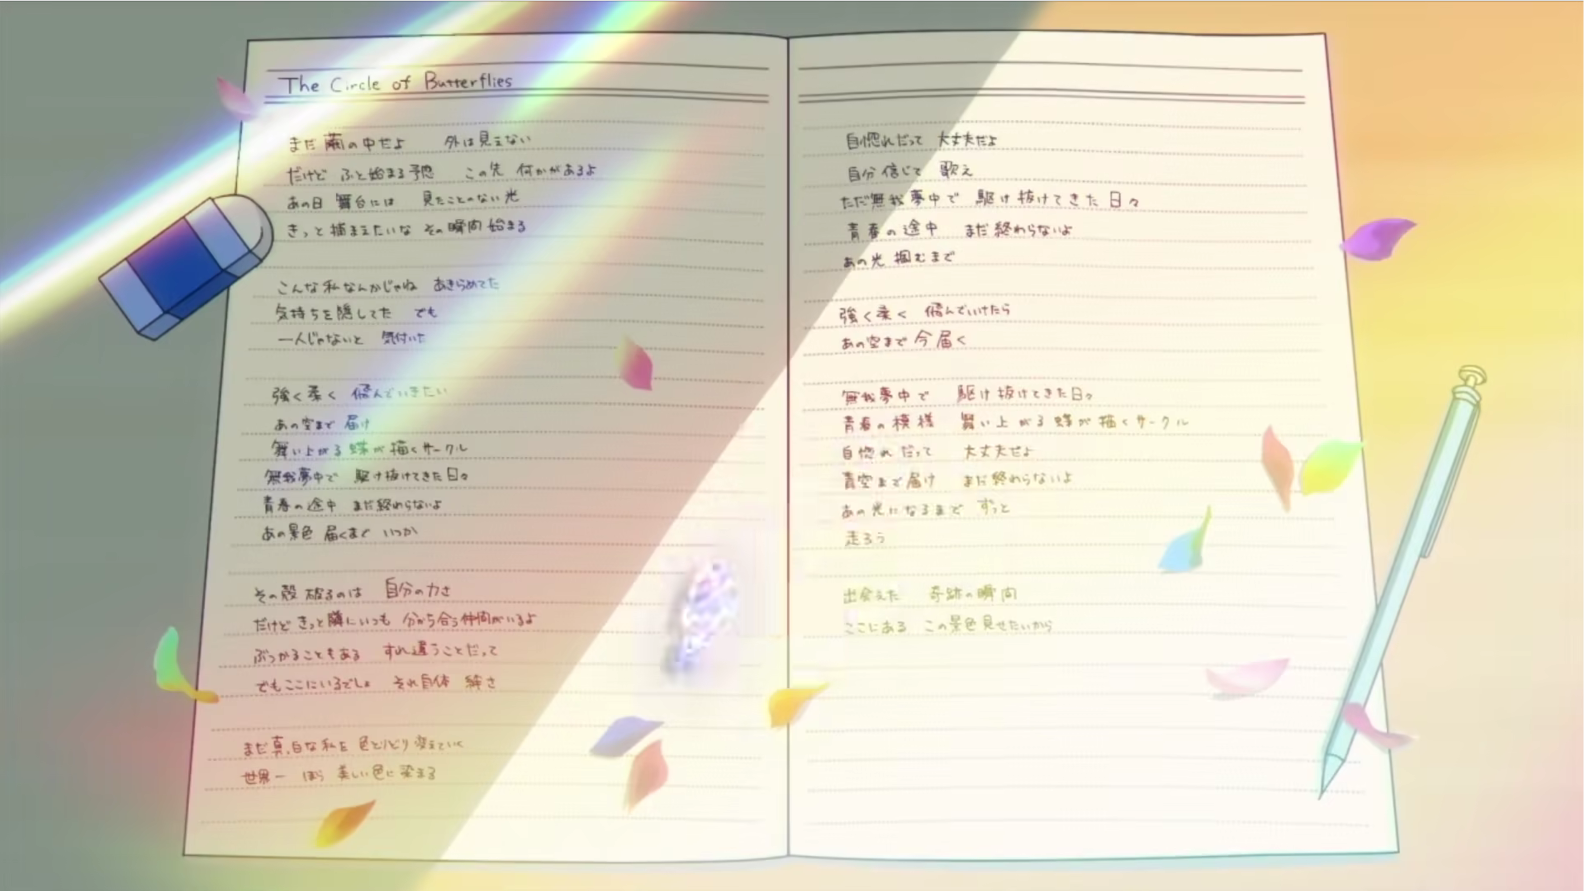 The Circle of Butterflies
まだ 繭の中だよ 外は見えない
だけど ふと始まる予感 この先 何かがあるよ
あの日 舞台には 見たことのない光
きっと捕まえたいな その瞬間始まる
こんな私なんかじゃね あきらめてた
気持ちを隠してた でも
一人じゃないと 気付いた
強く柔く 飛んでいきたい
あの空まで 届け
舞い上がる 蝶が描くサークル
無我夢中で 駆け抜けてきた日々
青春の途中 まだ終わらないよ
あの景色 届くまで いつか
その殻 破るのは 自分の力さ
だけどきっと隣にいつも 分かち合う仲間がいるよ
ぶつかることもある すれ違うことだって
でもここにいるでしょ それ自体 絆さ
まだ真っ白な私を 色とりどり変えていく
世界一 ほら 美しい色に染まる
自惚れだって 大丈夫だよ
自分信じて 歌え
ただ無我夢中で 駆け抜けてきた日々
青春の途中 まだ終わらないよ
あの光 掴むまで
強く柔く 飛んでいけたら
あの空まで今届く
無我夢中で 駆け抜けてきた日々
青春の模様 舞い上がる蝶が描くサークル
自惚れだって 大丈夫だよ
青空まで届け まだ終わらないよ
あの光になるまで ずっと
走ろう
出会えた 奇跡の瞬間
ここにある この景色見せたいから